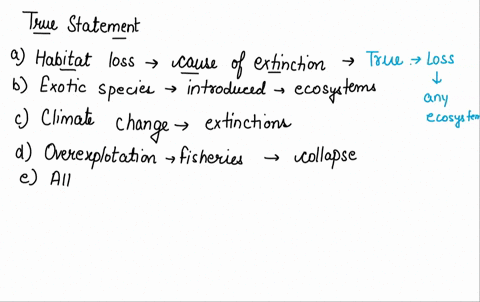 True Statement
a) Habitat loss → cause of extinction → True → Loss
↓
any
ecosystem
b) Exotic species → introduced → ecosystems
c) Climate change → extinctions
d) Overexplotation → fisheries → collapse
e) All